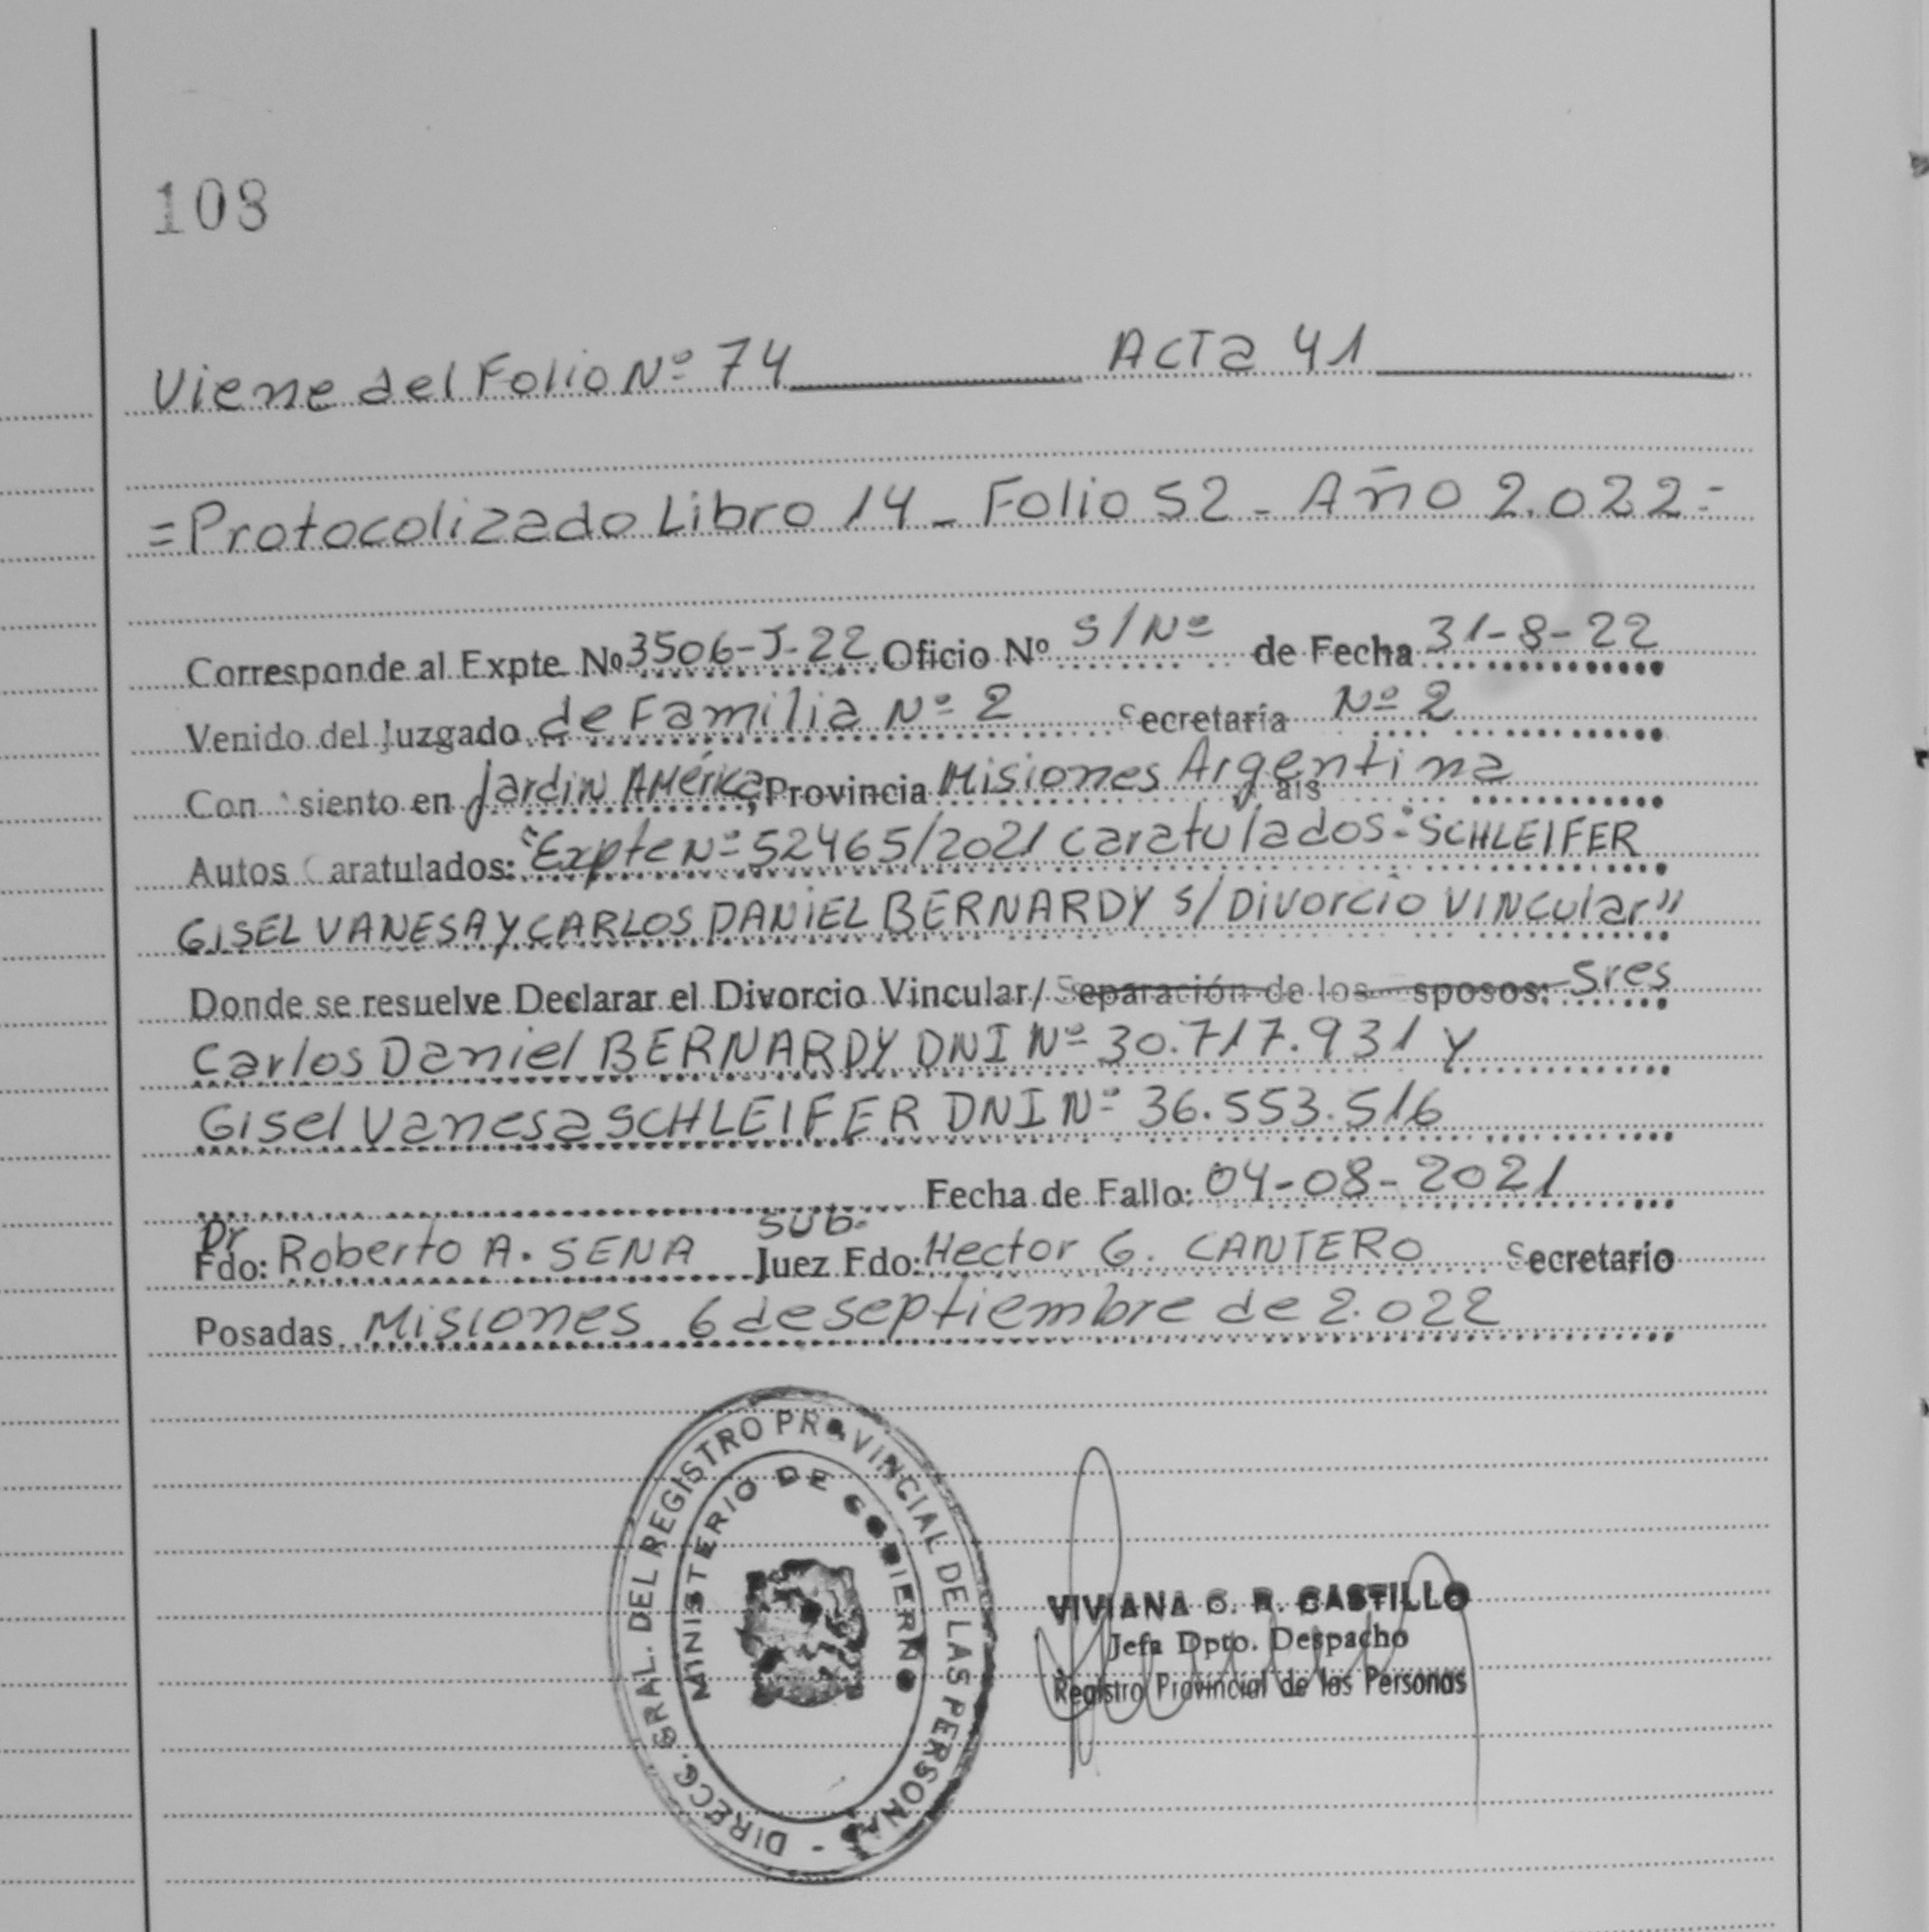 108
Viene del Folio Nº 74 Acta 41
=Protocolizado Libro 14 - Folio 52 - Año 2.022=
Corresponde al Expte Nº 3506-J-22 Oficio Nº S/Nº de Fecha 31-8-22
Venido del Juzgado de Familia Nº 2 Secretaría Nº 2
Con siento en Jardin América, Provincia Misiones Argentina ais
Autos Caratulados: "Expte Nº 52465/2021 caratulados: SCHLEIFER
GISEL VANESA Y CARLOS DANIEL BERNARDY S/ Divorcio Vincular"
Donde se resuelve Declarar el Divorcio Vincular/ Separación de los sposos: Sres
Carlos Daniel BERNARDY DNI Nº 30.717.931 y
Gisel Vanesa SCHLEIFER DNI Nº 36.553.516
Fecha de Fallo: 04-08-2021
Dr sub-
Fdo: Roberto A. SENA Juez Fdo: Hector G. CANTERO Secretario
Posadas Misiones 6 de septiembre de 2.022
DIRECC. GRAL. DEL REGISTRO PROVINCIAL DE LAS PERSONAS -
MINISTERIO DE GOBIERNO
VIVIANA C. R. CASTILLO
Jefa Dpto. Despacho
Registro Provincial de las Personas